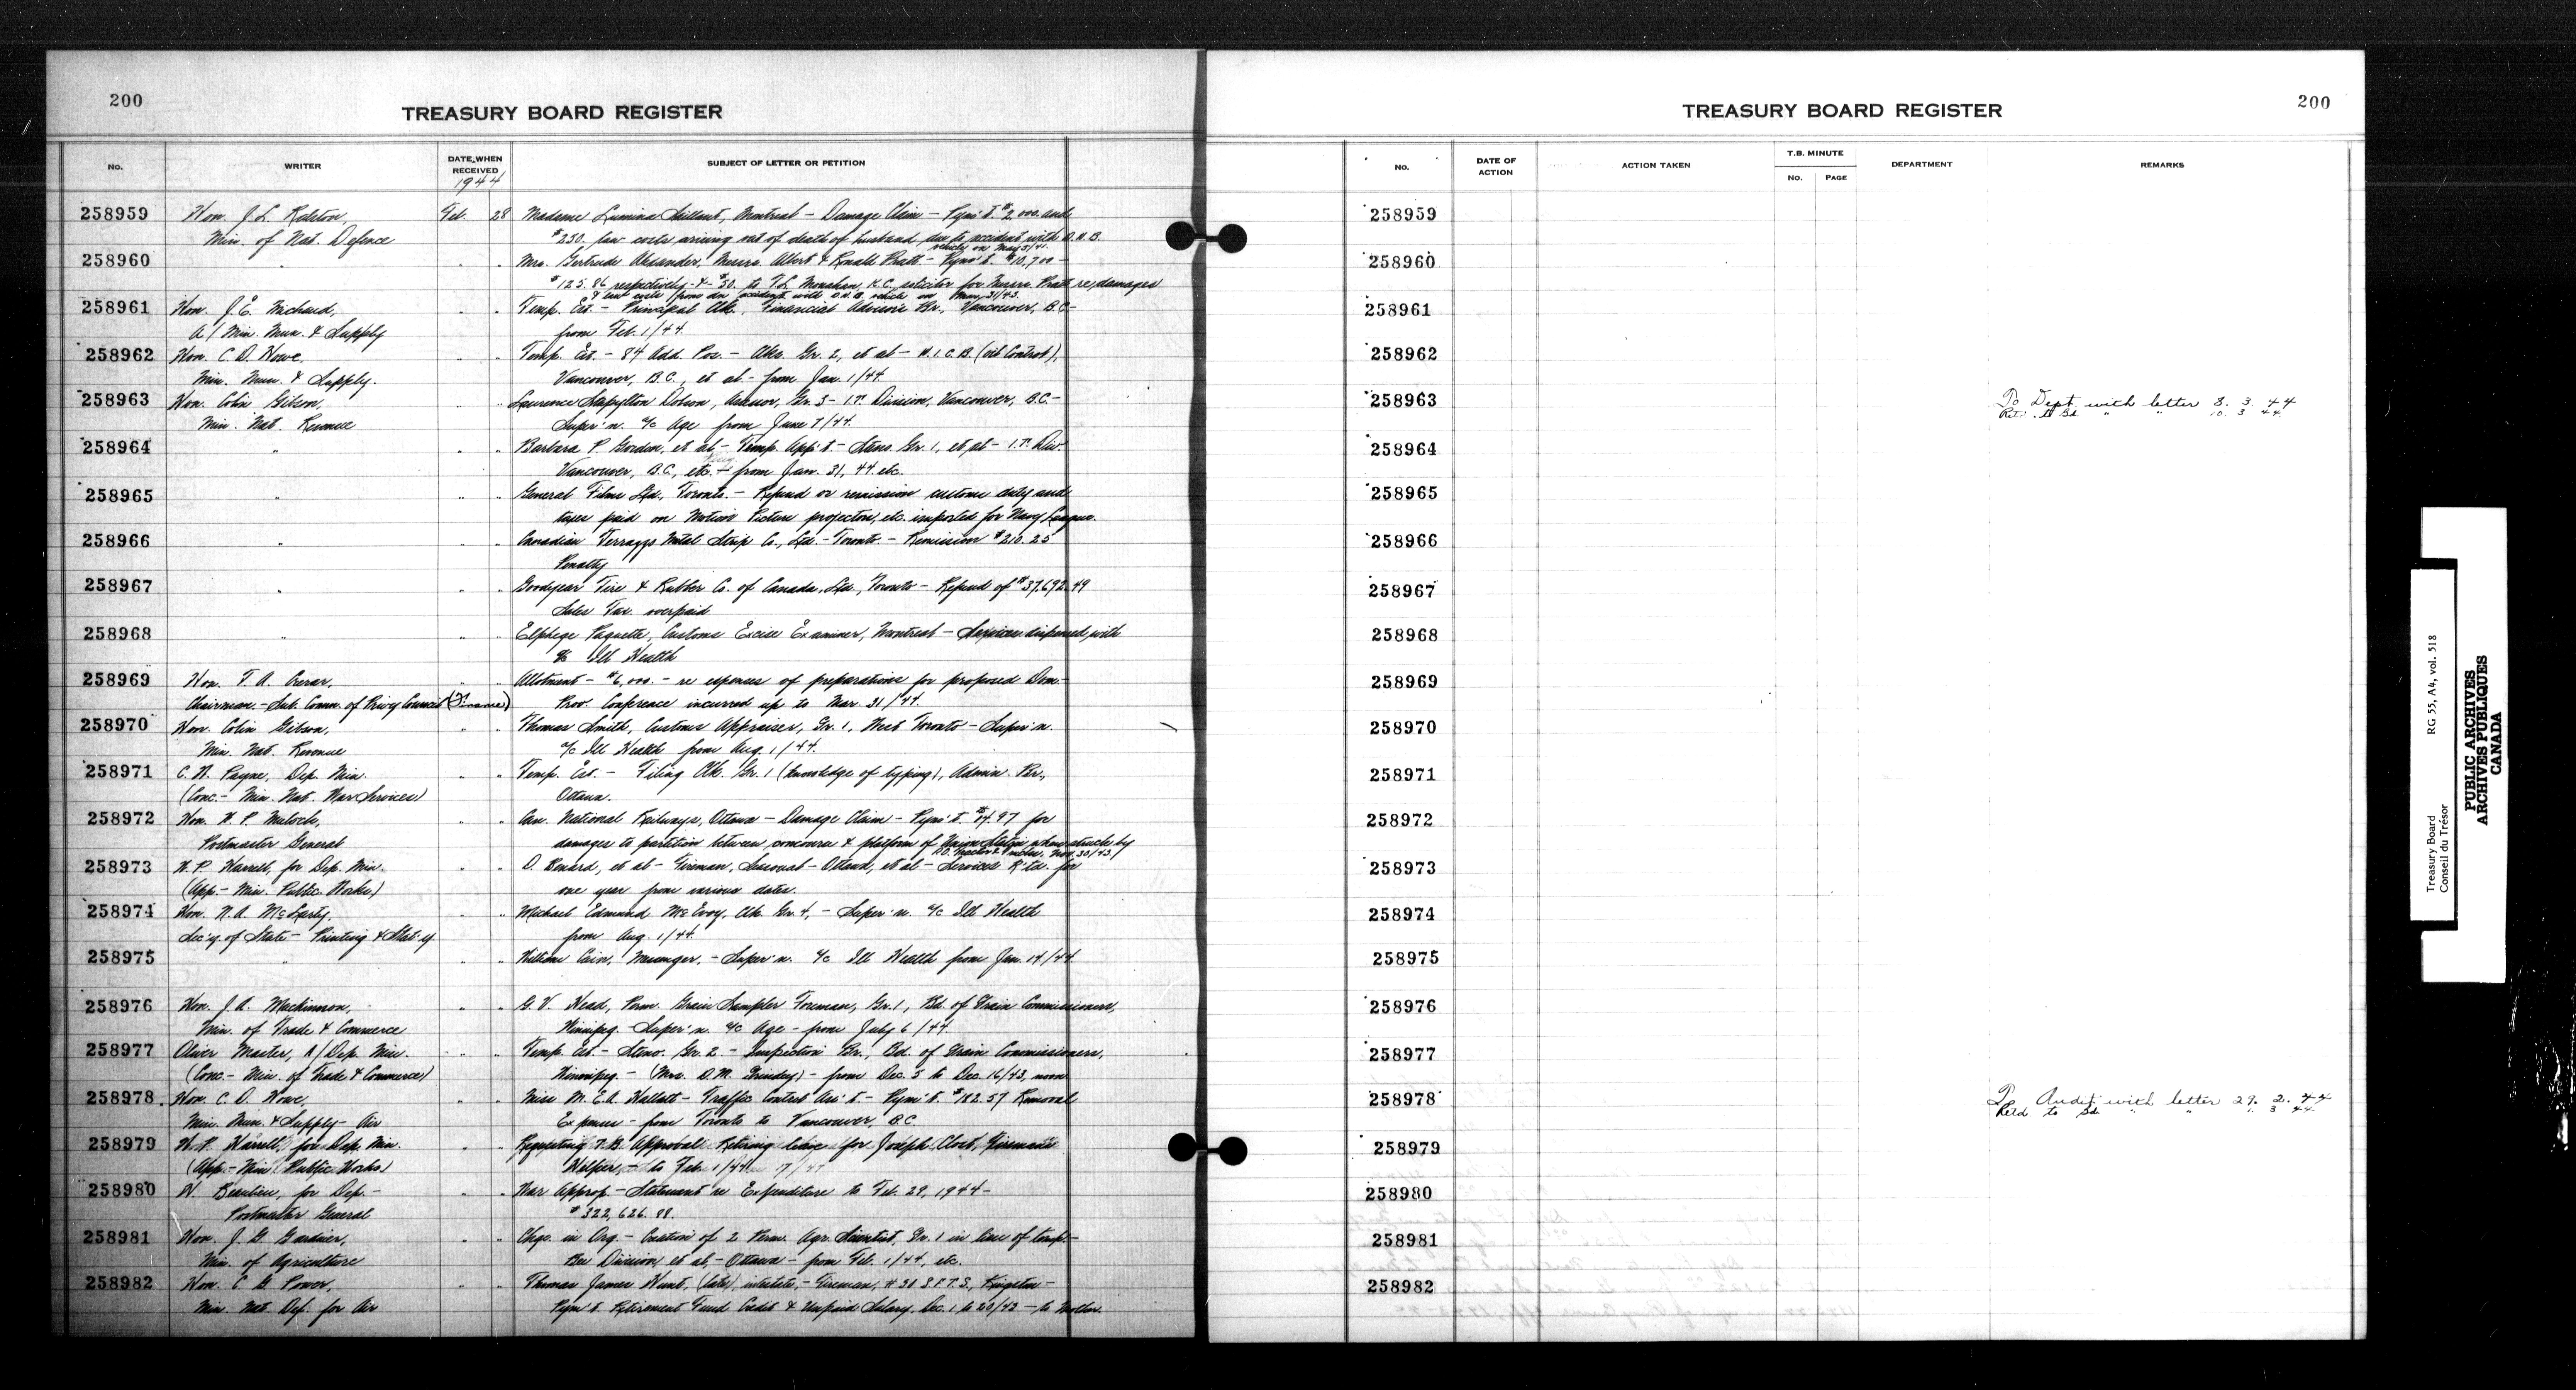 200
TREASURY BOARD REGISTER
No. WRITER DATE WHEN RECEIVED SUBJECT OF LETTER OR PETITION
1944
258959 Hon. J. L. Ralston, Feb. 28 Madame Lumina Saillant, Montreal - Damage Claim - Pym't. $2,000. and
Min. of Nat. Defence $250. law costs arising out of death of husband due to accident with D.N.D.
vehicle on May 3/41.
258960 " " " Mrs. Gertrude Alexander, Messrs. Albert & Ronald Pratt - Pym't. $10,700 -
$125.86 respectively - & $30. to T.L. Monahan, K.C., solicitor for Messrs. Pratt re, damages
& law costs from an accident with D.N.D. vehicle on May 31/43.
258961 Hon. J. E. Michaud, " " Temp. Est. - Principal Clk., Financial Advisor's Br., Vancouver, B.C. -
A/ Min. Mun. & Supply from Feb. 1/44.
258962 Hon. C. D. Howe. " " Temp. Est. - 84 Add. Pos. - Clks. Gr. 2, et al - W.I.C.B. (Oil Control),
Min. Mun. & Supply. Vancouver, B.C., et al - from Jan. 1/44.
258963 Hon. Colin Gibson, " " Laurence Stapylton Dobson, Assessor, Gr. 3 - I.T. Division, Vancouver, B.C. -
Min. Nat. Revenue Super'n. a/c Age from June 7/44.
258964 " " " Barbara P. Gordon, et al - Temp. App't - Steno. Gr. 1, et al - I.T. Div.
Vancouver, B.C., etc. - from Jan. 31, 44 etc.
258965 " " " General Films Ltd., Toronto. - Refund or remission customs duty and
taxes paid on Motion Picture projectors, etc. imported for Navy League.
258966 " " " Canadian Terrazzo Metal Strip Co., Ltd. - Toronto. - Remission $210.25
Penalty
258967 " " " Goodyear Tire & Rubber Co. of Canada, Ltd., Toronto - Refund of $37,692.49
Sales Tax overpaid
258968 " " " Elphege Paquette, Customs Excise Examiner, Montreal - Services dispensed with
a/c Ill Health
258969 Hon. T. A. Crerar, " " Allotment - $6,000. - re expenses of preparations for proposed Dom. -
Chairman. - Sub. Comm. of Privy Council (Finance) Prov. Conference incurred up to Mar. 31/44.
258970 Hon. Colin Gibson, " " Thomas Smith, Customs Appraiser, Gr. 1, West Toronto - Super'n.
Min. Nat. Revenue a/c Ill Health from Aug. 1/44.
258971 C. N. Payne, Dep. Min. " " Temp. Est. - Filing Clk. Gr. 1 (knowledge of typing), Admin. Br.,
(Conc. - Min. Nat. War Services) Ottawa.
258972 Hon. W. P. Mulock, " " Can. National Railways, Ottawa - Damage Claim - Pym't. for
Postmaster General damages to partition between concourse & platform of Union Station when struck by
P.O. Tractor & trailer, Nov. 30/43.
258973 W. P. Harrell, for Dep. Min. " " D. Benard, et al - Fireman, Seasonal - Ottawa, et al - Services R'td. for
(App. - Min. Public Works) one year from various dates.
258974 Hon. N. A. McLarty, " " Michael Edmund McEvoy, Clk. Gr. 4, - Super'n. a/c Ill Health
Sec'y. of State - Printing & Stat'y from Aug. 1/44.
258975 " " " William Cain, Messenger, - Super'n. a/c Ill Health from Jan. 14/44
258976 Hon. J. A. MacKinnon, " " G. V. Head, Perm. Grain Sampler Foreman, Gr. 1, Bd. of Grain Commissioners,
Min. of Trade & Commerce Winnipeg. - Super'n. a/c Age - from July 6/44.
258977 Oliver Master, A/ Dep. Min. " " Temp. Est. - Steno. Gr. 2. - Inspection Br., Bd. of Grain Commissioners,
(Conc. - Min. of Trade & Commerce) Winnipeg. - (Mrs. D.M. Grindey) - from Dec. 5 to Dec. 16/43, noon
258978 Hon. C. D. Howe, " " Miss M. E. A. Hallatt - Traffic Control Ass't - Pym't. $182.57 Removal
Min. Mun. & Supply - Air Expenses - from Toronto to Vancouver, B.C.
258979 W. P. Harrell, for Dep. Min. " Requesting T.B. Approval Retiring leave for Joseph Clost, Fireman's
(App. - Min. Public Works) Helper, - to Feb. 1/44
258980 W. Beaulieu, for Dep. - " " War Approp. - Statement re Expenditure to Feb. 29, 1944 -
Postmaster General $322,626.88.
258981 Hon. J. G. Gardiner, " " Chge. in Org. - Creation of 2 Perm. Agr. Scientist, Gr. 1 in lieu of temp. -
Min. of Agriculture Bee Division, et al, - Ottawa - from Feb. 1/44, etc.
258982 Hon. C. G. Power, " " Thomas James Hunt, (late), intestate, - Fireman, #31 S.F.T.S., Kingston -
Min. Nat. Def. for Air Pym't. Retirement Fund Credit & Unpaid Salary, Dec. 1 to 20/43 - to Mother.
200
TREASURY BOARD REGISTER
No. DATE OF ACTION ACTION TAKEN T.B. MINUTE No. PAGE DEPARTMENT REMARKS
258959
258960
258961
258962
258963 To Dept. with letter 8. 3. 44
Ret'd. to Bd. " " 10. 3. 44
258964
258965
258966
258967
258968
258969
258970
258971
258972
258973
258974
258975
258976
258977
258978 To Audit with letter 29. 2. 44
Ret'd to Bd. " " 1. 3. 44
258979
258980
258981
258982
Treasury Board RG 55, A4, vol. 518
Conseil du Trésor
PUBLIC ARCHIVES
ARCHIVES PUBLIQUES
CANADA